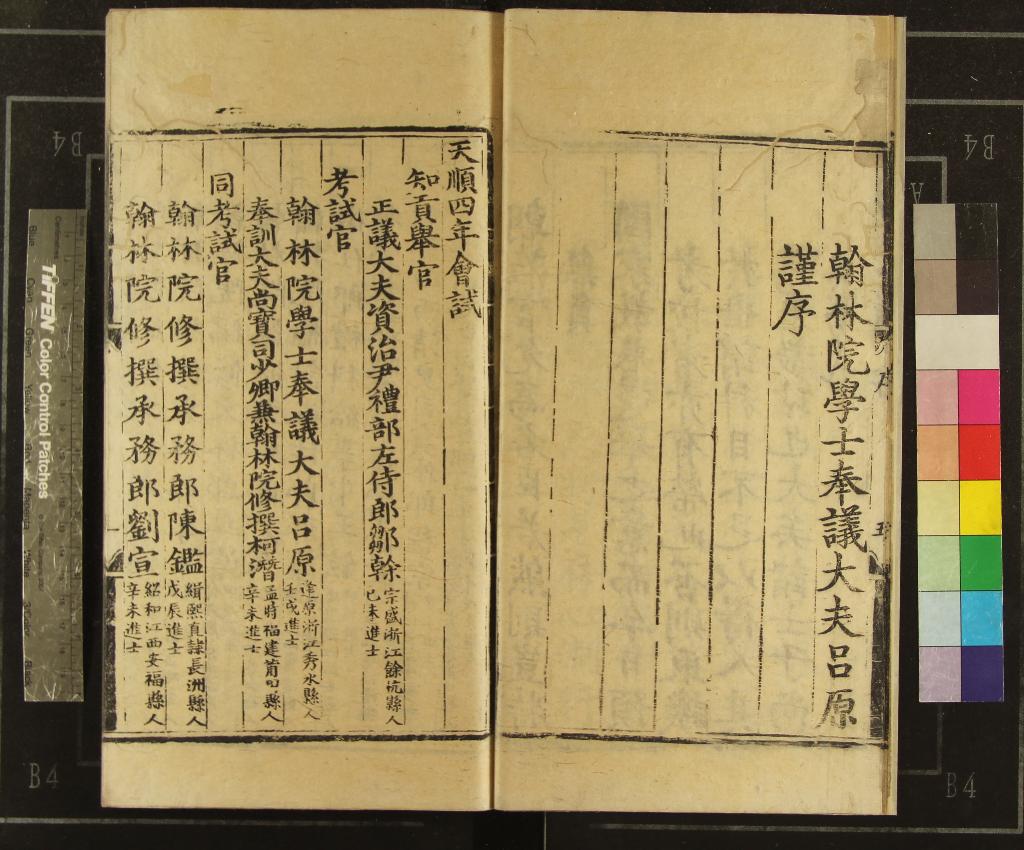 翰林院學士奉議大夫呂原
謹序
序
五
天順四年會試
知貢舉官
正議大夫資治尹禮部左侍郎鄒幹
宗盛浙江餘杭縣人
己未進士
考試官
翰林院學士奉議大夫呂原
逢原浙江秀水縣人
壬戌進士
奉訓大夫尚寶司少卿兼翰林院修撰柯潛
孟時福建莆田縣人
辛未進士
同考試官
翰林院修撰承務郎陳鑑
緝熙直隷長洲縣人
戊辰進士
翰林院修撰承務郎劉宣
紹和江西安福縣人
辛未進士
TIFFEN Color Control Patches
B4
B4
B4
B4
A